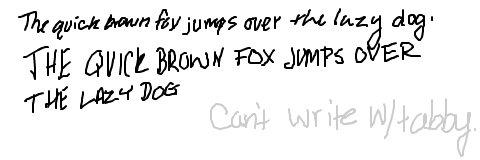 The quick brown fox jumps over the lazy dog.
THE QUICK BROWN FOX JUMPS OVER
THE LAZY DOG
Can't write w/tabby.